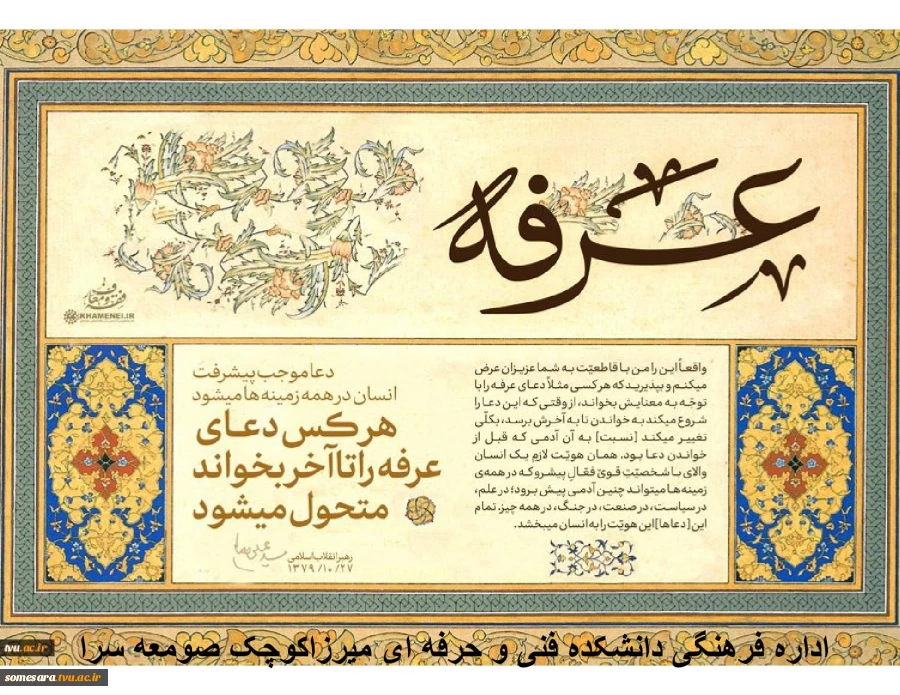 عرفه
KHAMENEI.IR
واقعاً این را من با قاطعیّت به شما عزیزان عرض
میکنم و بپذیرید که هر کسی مثلاً دعای عرفه را با
توجّه به معنایش بخواند، از وقتی که این دعا را
شروع میکند به خواندن تا به آخرش برسد، بکلّی
تغییر میکند [نسبت] به آن آدمی که قبل از
خواندن دعا بود. همان هویّت لازمِ یک انسان
والای با شخصیّتِ قویّ فعّالِ پیشرو که در همه‌ی
زمینه‌ها میتواند چنین آدمی پیش برود؛ در علم،
در سیاست، در صنعت، در جنگ، در همه چیز. تمام
این [دعاها] این هویّت را به انسان میبخشد.
دعا موجب پیشرفت
انسان در همه زمینه‌ها میشود
هر کس دعای
عرفه را تا آخر بخواند
متحول میشود
رهبر انقلاب اسلامی
۱۳۷۹/۱۰/۲۷
اداره فرهنگی دانشکده فنی و حرفه ای میرزاکوچک صومعه سرا
tvu.ac.ir
somesara.tvu.ac.ir